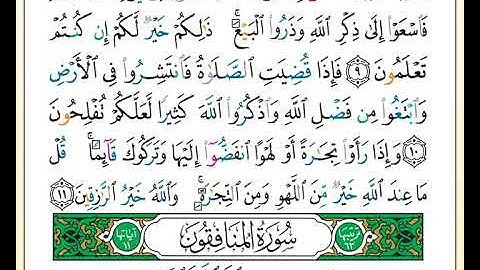 فَٱسۡعَوۡاْ إِلَىٰ ذِكۡرِ ٱللَّهِ وَذَرُواْ ٱلۡبَيۡعَۚ ذَٰلِكُمۡ خَيۡرٞ لَّكُمۡ إِن كُنتُمۡ
تَعۡلَمُونَ ٩ فَإِذَا قُضِيَتِ ٱلصَّلَوٰةُ فَٱنتَشِرُواْ فِي ٱلۡأَرۡضِ
وَٱبۡتَغُواْ مِن فَضۡلِ ٱللَّهِ وَٱذۡكُرُواْ ٱللَّهَ كَثِيرٗا لَّعَلَّكُمۡ تُفۡلِحُونَ
١٠ وَإِذَا رَأَوۡاْ تِجَٰرَةً أَوۡ لَهۡوًا ٱنفَضُّوٓاْ إِلَيۡهَا وَتَرَكُوكَ قَآئِمٗاۚ قُلۡ
مَا عِندَ ٱللَّهِ خَيۡرٞ مِّنَ ٱللَّهۡوِ وَمِنَ ٱلتِّجَٰرَةِۚ وَٱللَّهُ خَيۡرُ ٱلرَّٰزِقِينَ ١١
ترتيبها ٦٣ سُورَةُ المُنَافِقُونَ آياتها ١١